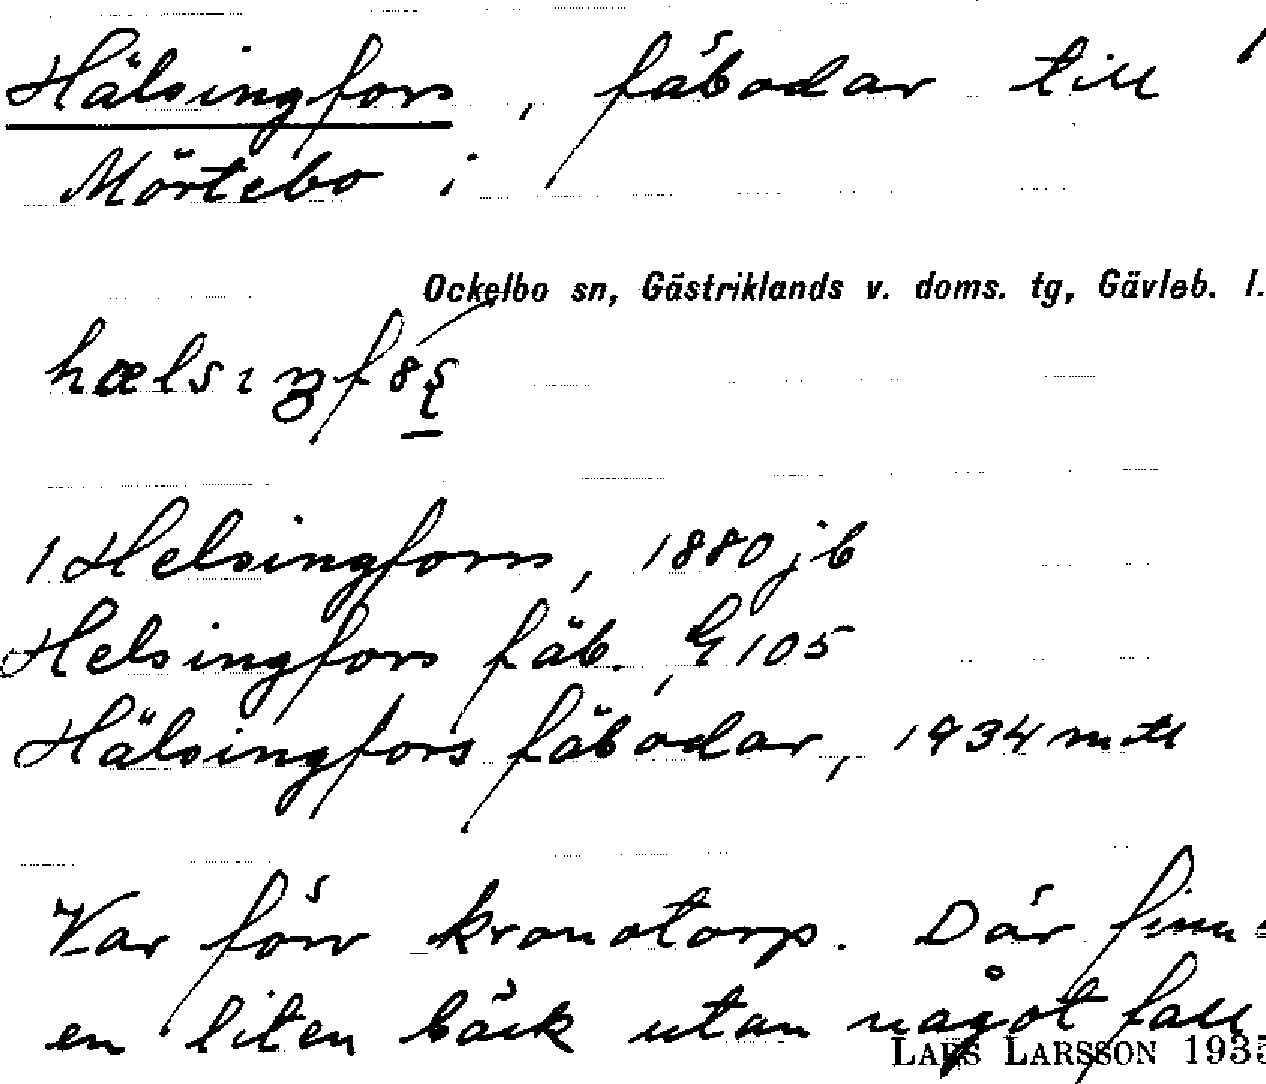 Hälsingfors, fäbodar till
Mörtebo i
Ockelbo sn, Gästriklands v. doms. tg, Gävleb. l.
1 Helsingfors, 1880 jb
Helsingfors fäb., G 105
Hälsingfors fäbodar, 1934 mtl
Var förr kronotorp. Där finns
en liten bäck utan något fall.
LARS LARSSON 1935